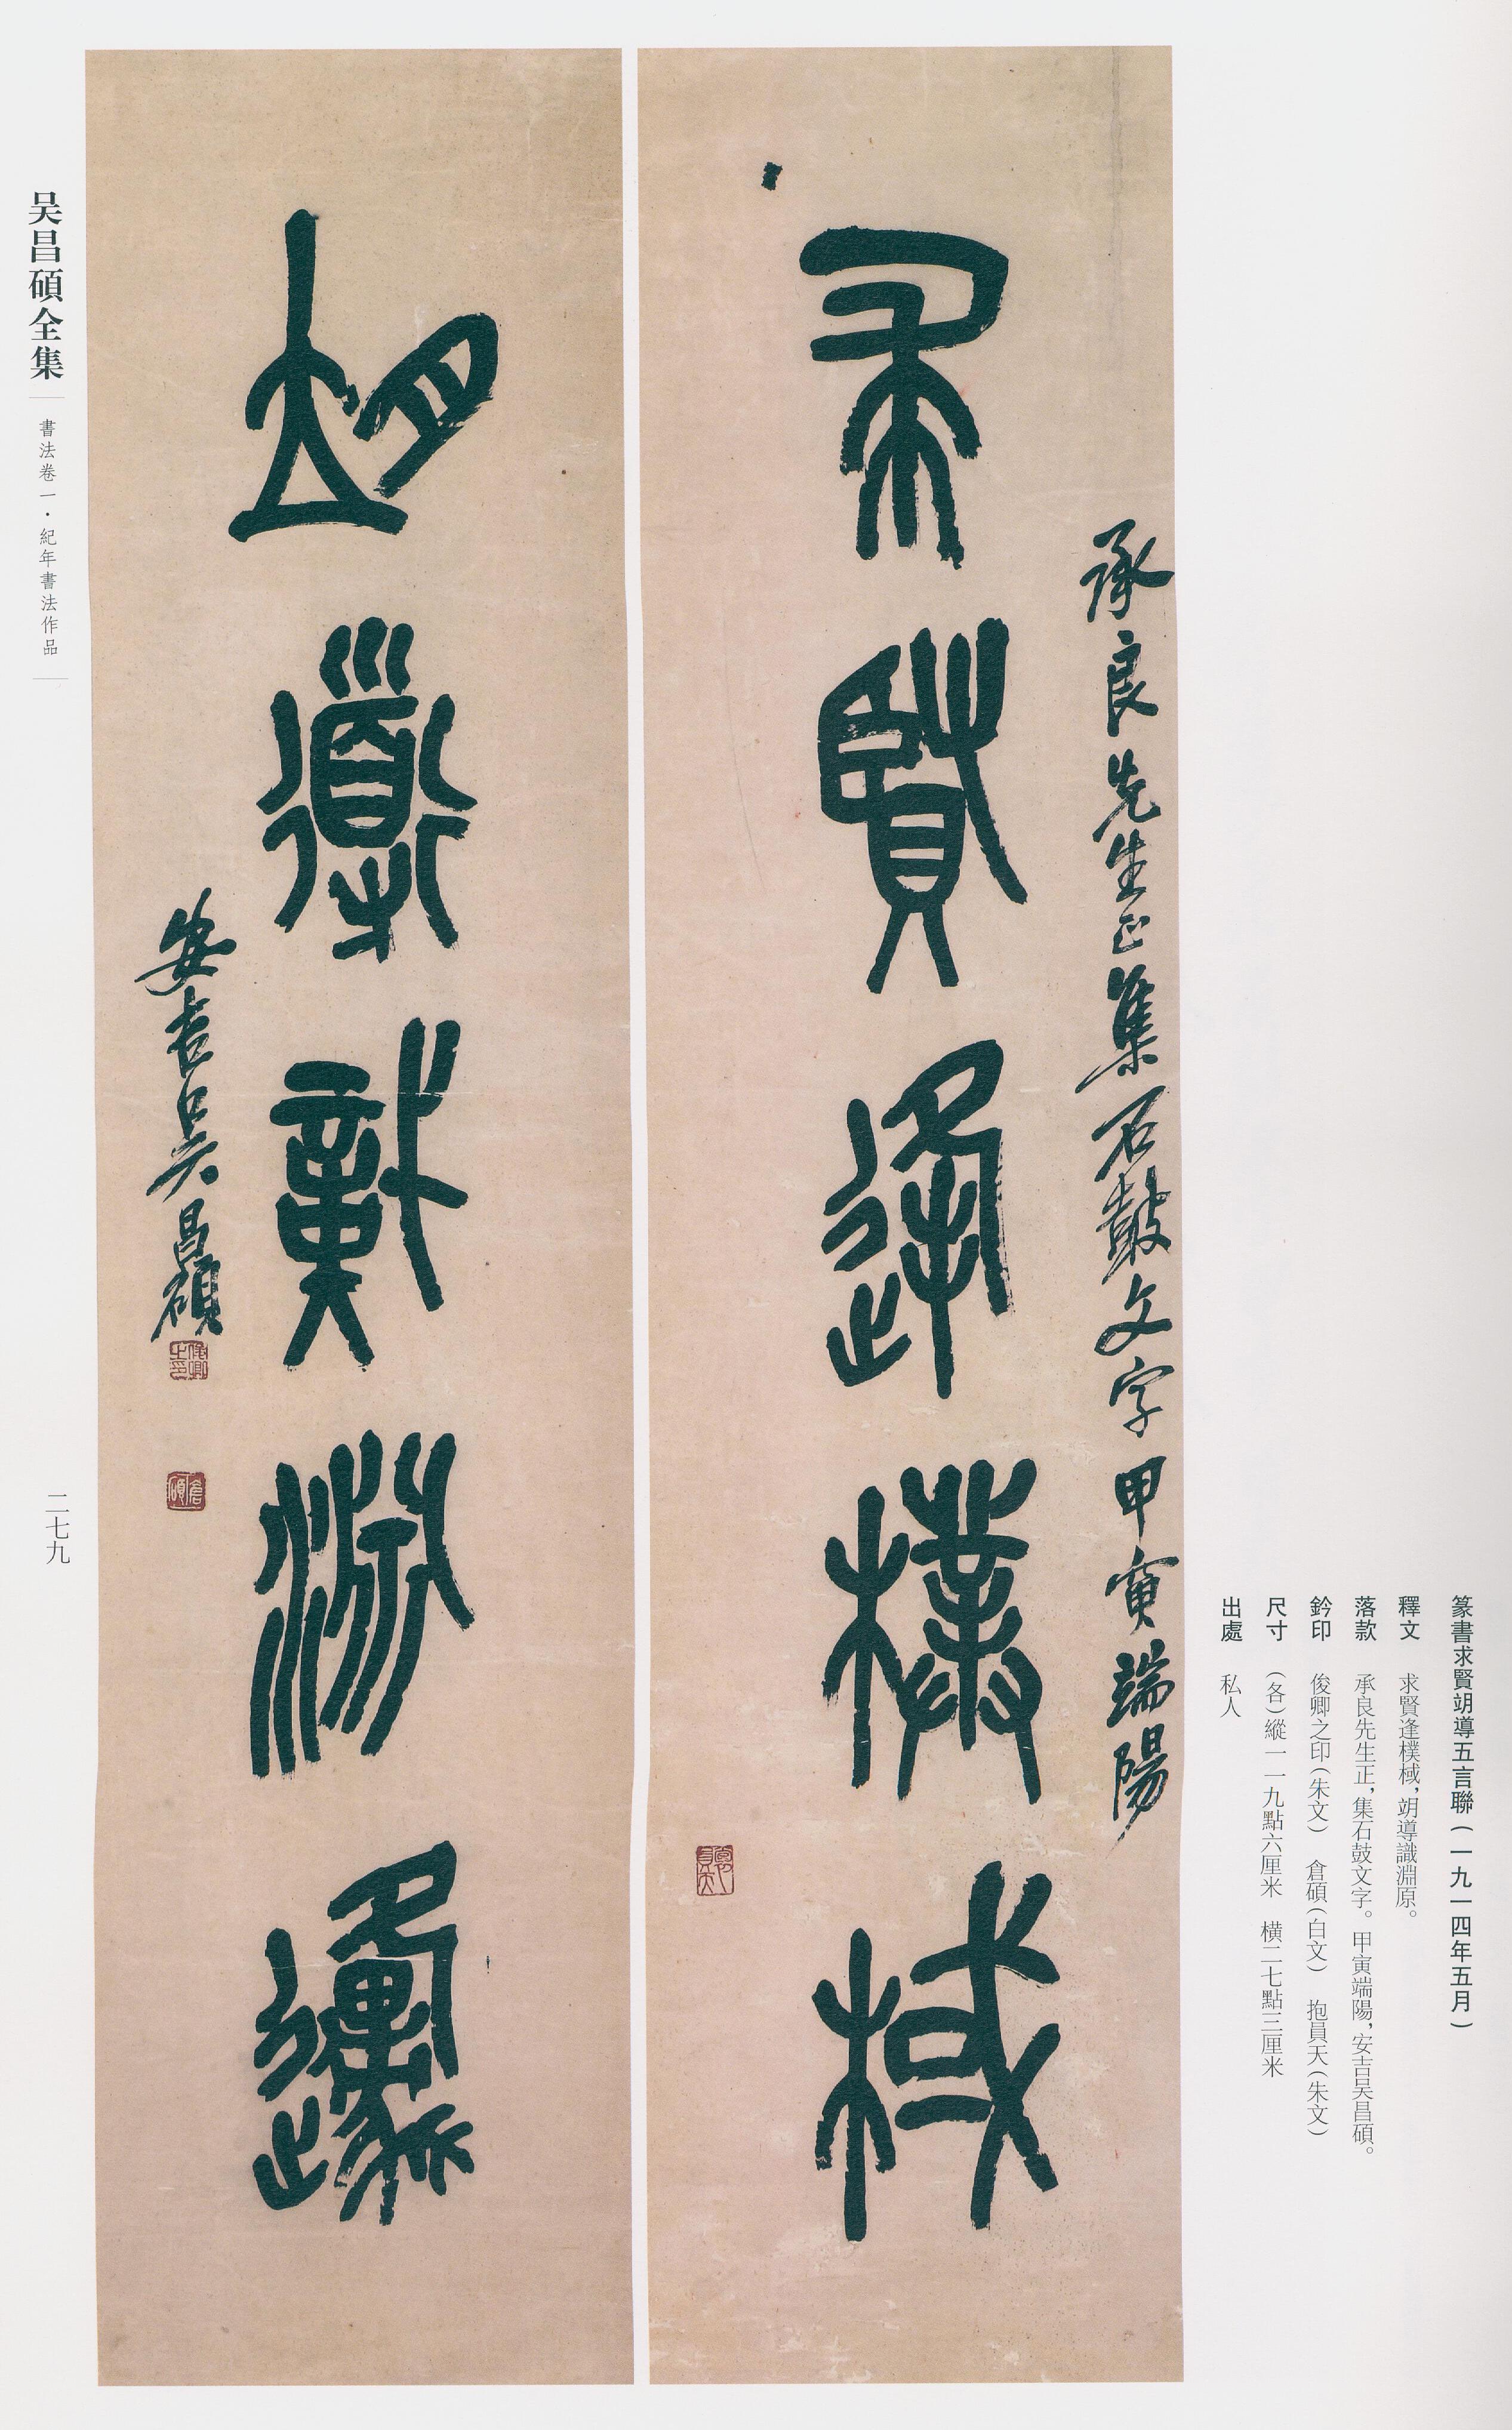 篆書求賢翊導五言聯(一九一四年五月)
釋文 求賢逢樸棫,翊導識淵原。
落款 承良先生正,集石鼓文字。甲寅端陽,安吉吴昌碩。
鈐印 俊卿之印(朱文) 倉碩(白文) 抱員天(朱文)
尺寸 (各)縱一一九點六厘米 横二七點三厘米
出處 私人
承良先生正集石鼓文字甲寅端陽
求賢逢樸棫
抱員天
翊導識淵原
安吉吴昌碩
俊卿之印
倉碩
吴昌碩全集
書法卷一·紀年書法作品
二七九